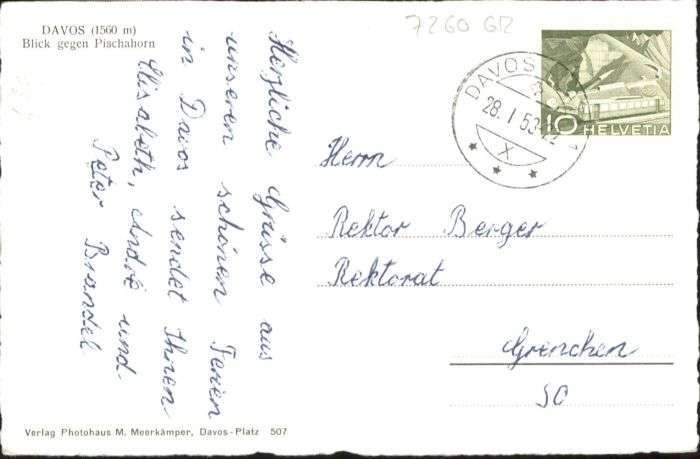 DAVOS (1560 m)
Blick gegen Pischahorn
7260 GR
Herzliche Grüsse aus
unseren schönen Ferien
in Davos sendet Ihnen
Elisabeth, André und
Peter Brandel
DAVOS
28. I 53-22
X
1
10 HELVETIA
Herrn
Rektor Berger
Rektorat
Grenchen
SO
Verlag Photohaus M. Meerkämper, Davos-Platz 507